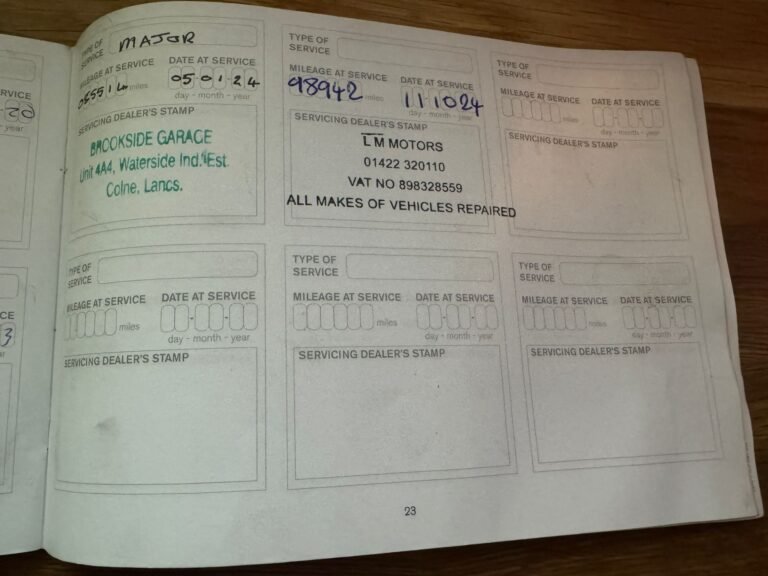 TYPE OF SERVICE MAJOR
MILEAGE AT SERVICE DATE AT SERVICE
miles 05-01-24
day - month - year
SERVICING DEALER'S STAMP
BROOKSIDE GARAGE
Unit 4A4, Waterside Ind. Est.
Colne, Lancs.
TYPE OF
SERVICE
MILEAGE AT SERVICE DATE AT SERVICE
98942 miles 11 10 24
day - month - year
SERVICING DEALER'S STAMP
L M MOTORS
01422 320110
VAT NO 898328559
ALL MAKES OF VEHICLES REPAIRED
TYPE OF
SERVICE
MILEAGE AT SERVICE DATE AT SERVICE
miles
day - month - year
SERVICING DEALER'S STAMP
TYPE OF
SERVICE
MILEAGE AT SERVICE DATE AT SERVICE
miles
day - month - year
SERVICING DEALER'S STAMP
TYPE OF
SERVICE
MILEAGE AT SERVICE DATE AT SERVICE
miles
day - month - year
SERVICING DEALER'S STAMP
TYPE OF
SERVICE
MILEAGE AT SERVICE DATE AT SERVICE
miles
day - month - year
SERVICING DEALER'S STAMP
23